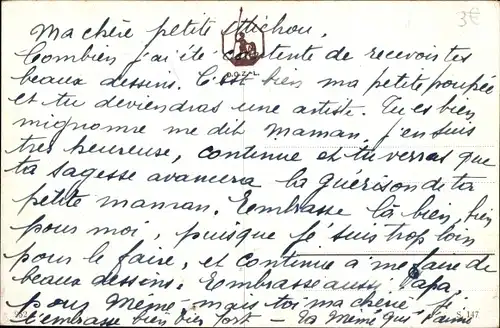 3€
Ma chère petite Michou,
Combien j'ai été contente de recevoir tes
beaux dessins. C'est bien ma petite poupée
et tu deviendras une artiste. Tu es bien
mignonne me dit Maman, j'en suis
très heureuse, continue et tu verras que
ta sagesse avancera la guérison de ta
petite maman. Embrasse là bien, bien
pour moi, puisque je suis trop loin
pour le faire, et continue à me faire de
beaux dessins. Embrasse aussi Papa,
pour Mémé - mais toi ma chérie je
t'embrasse bien bien fort - Ta Mémé qui t'aime
S. 147